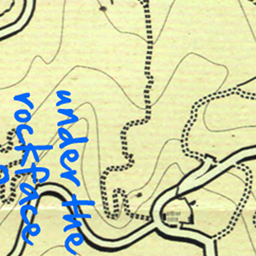 under the
rockface